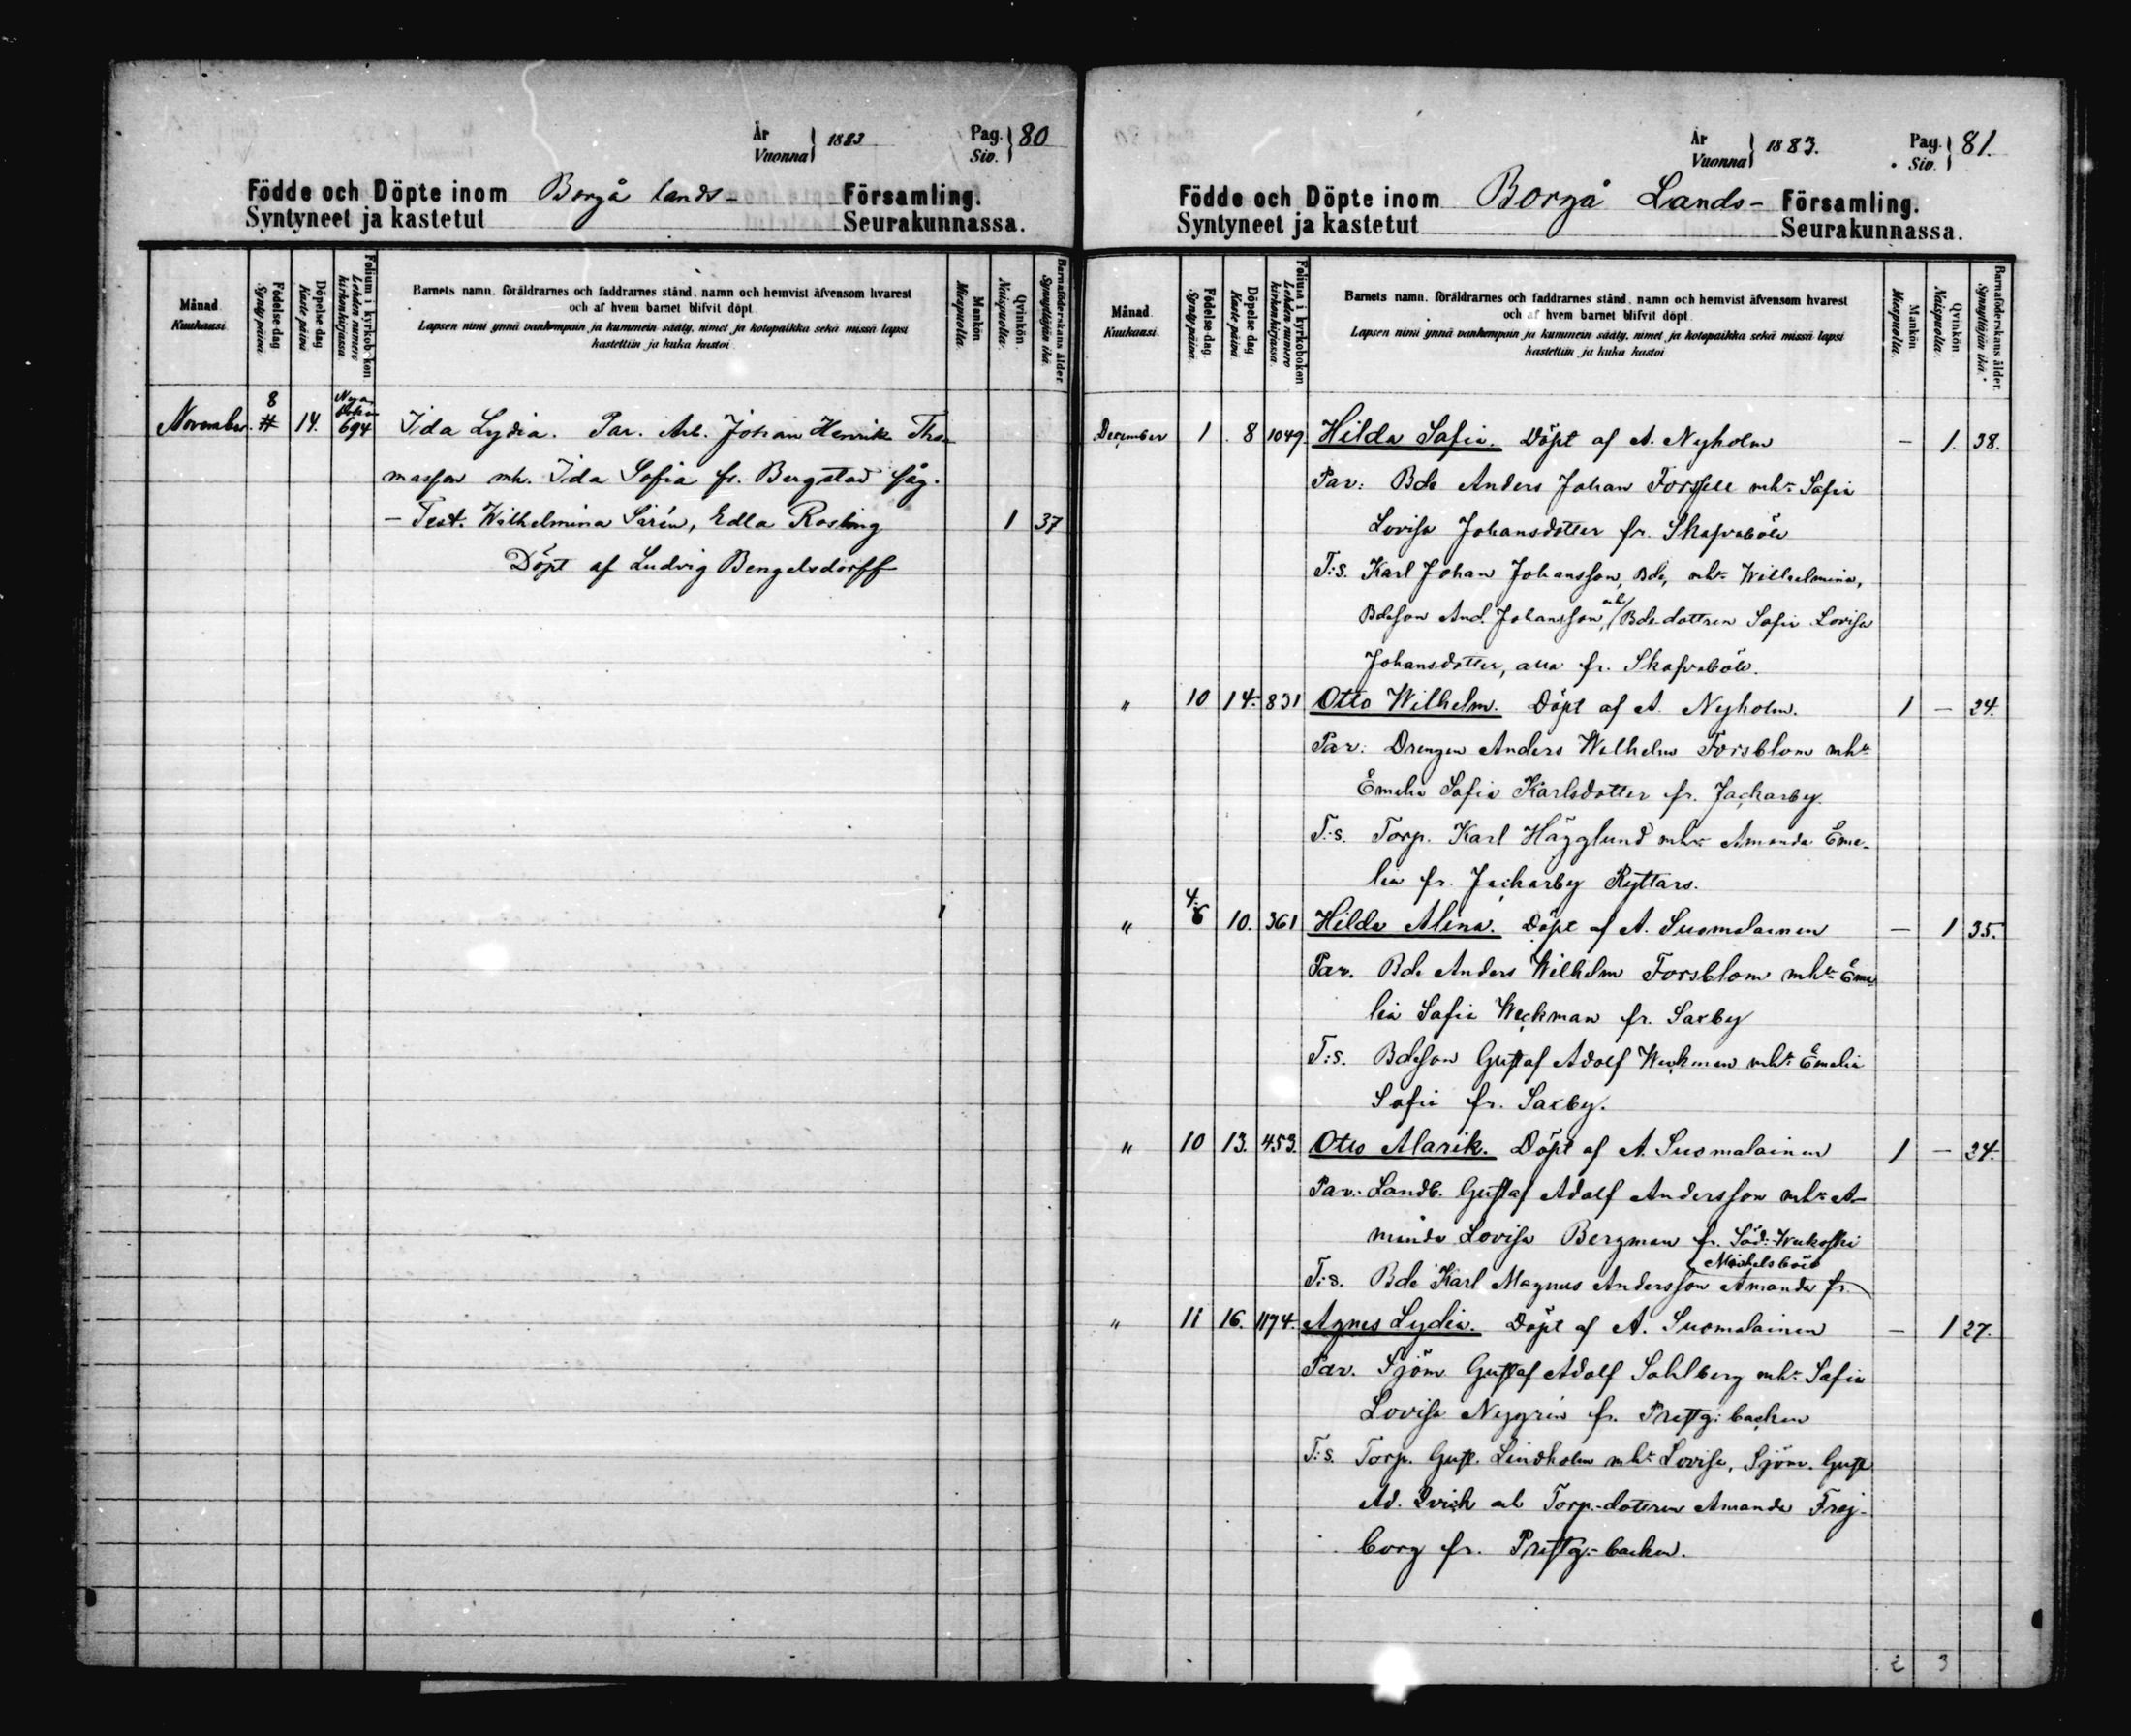 År
Vuonna } 1883
Pag.
Siv. } 80
Födde och Döpte inom Borgå lands- Församling.
Syntyneet ja kastetut Seurakunnassa.
Månad.
Kuukausi.
Födelse-dag.
Synty päivä.
Döpelse-dag.
Kaste päivä
Folium i kyrkoboken
Lehden numero kirkonkirjassa.
Barnets namn, föräldrarnes och faddrarnes stånd, namn och hemvist äfvensom hvarest
och af hvem barnet blifvit döpt.
Lapsen nimi ynnä vanhempain ja kummein sääty, nimet ja kotopaikka sekä missä lapsi
kastettiin ja kuka kastoi.
Mankön.
Miespuolia.
Qvinkön.
Naispuolia.
Barnaföderskans ålder.
Synnyttäjän ikä.
November. 8 14. Nya 694 Ida Lydia. Par. Arb. Johan Henrik Tho-
massson mh. Ida Sofia fr. Bergstad såg.
- Test. Wilhelmina Sirén, Edla Rosling 1 37
Döpt af Ludvig Bengelsdorff
År
Vuonna } 1883.
Pag.
Siv. } 81.
Födde och Döpte inom Borgå Lands- Församling.
Syntyneet ja kastetut Seurakunnassa.
Månad.
Kuukausi.
Födelse-dag.
Synty päivä.
Döpelse-dag.
Kaste päivä
Folium i kyrkoboken
Lehden numero kirkonkirjassa.
Barnets namn, föräldrarnes och faddrarnes stånd, namn och hemvist äfvensom hvarest
och af hvem barnet blifvit döpt.
Lapsen nimi ynnä vanhempain ja kummein sääty, nimet ja kotopaikka sekä missä lapsi
kastettiin ja kuka kastoi.
Mankön
Miespuolia.
Qvinkön.
Naispuolia.
Barnaföderskans ålder.
Synnyttäjän ikä.
December 1 8 1049. Hilda Sofia. Döpt af A. Nyholm - 1. 38.
Par: Bde Anders Johan Forssell mh. Sofia
Lovisa Johansdotter fr. Skafvaböle
T:s. Karl Johan Johansson, Bde, mh. Wilhelmina,
Bdeson And. Johansson, och Bde-dottren Sofia Lovisa
Johansdotter, alla fr. Skafvaböle.
" 10 14. 831 Otto Wilhelm. Döpt af A. Nyholm. 1 - 24.
Par: Drengen Anders Wilhelm Forsblom mh.
Emelia Sofia Karlsdotter fr. Jackarby.
T:s. Torp. Karl Hägglund mh. Amanda Eme-
lia fr. Jackarby Ryttars.
" 4. 6 10. 361 Hilda Alina. Döpt af A. Suomalainen - 1 35.
Par. Bde Anders Wilhelm Forsblom mh. Eme-
lia Sofia Weckman fr. Saxby
T:s. Bdeson Gustaf Adolf Weckman mh. Emelia
Sofia fr. Saxby.
" 10 13. 453. Otto Alarik. Döpt af A. Suomalainen 1 - 24.
Par: Landb. Gustaf Adolf Andersson mh. A-
manda Lovisa Bergman fr. Söd: Wekoski
T:s. Bde Karl Magnus Andersson Amanda fr. Michelsböle
" 11 16. 1174. Agnes Lydia. Döpt af A. Suomalainen - 1 27.
Par. Sjöm Gustaf Adolf Sahlberg mh. Sofia
Lovisa Nygrén fr. Prestg: backen
T:s. Torp. Gust. Lindholm mh. Lovisa, Sjöm. Gust
Ad. Qvick och Torp.-dotren Amanda Frej-
borg fr. Prestg:-backen.
2 3